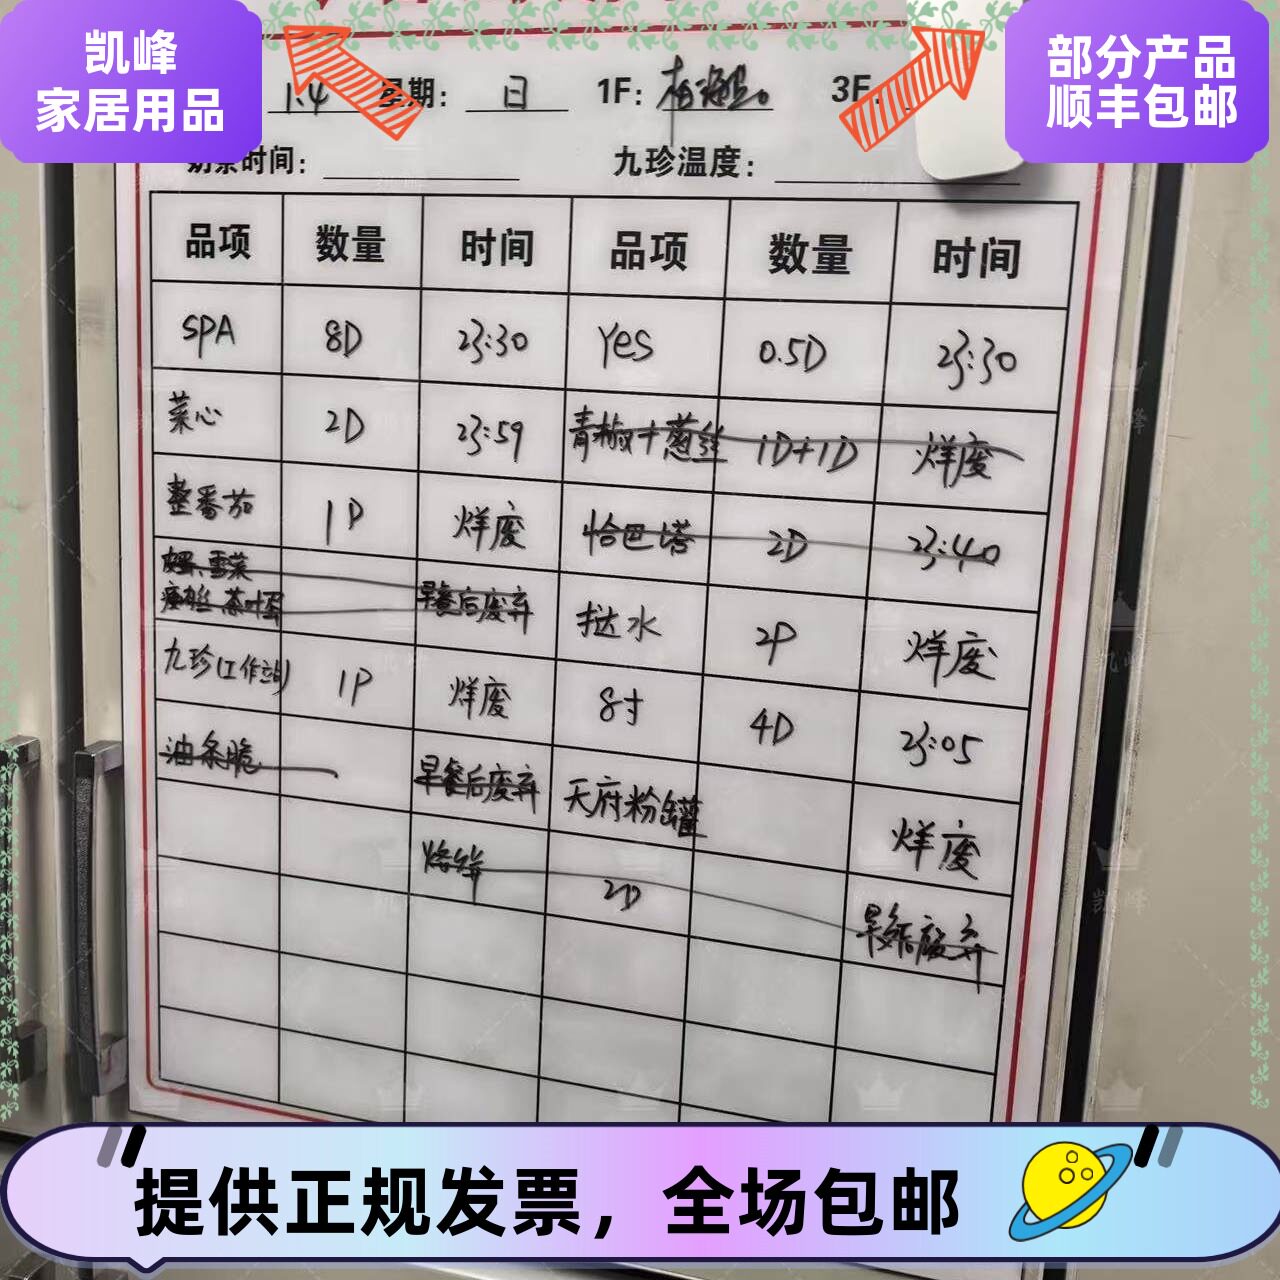 凯峰
家居用品
部分产品
顺丰包邮
1.4 星期: 日 1F: 3F:
时间: 九珍温度:
品项 数量 时间 品项 数量 时间
SPA 8D 23:30 Yes 0.5D 23:30
菜心 2D 23:59 青椒+葱丝 1D+1D 烊废
整番茄 1P 烊废 恰巴塔 2D 23:40
雪菜 茶叶蛋 早餐后废弃 挞水 2P 烊废
九珍(工作站) 1P 烊废 8寸 4D 23:05
油条脆 早餐后废弃 天府粉罐 烊废
2D 废弃
提供正规发票，全场包邮